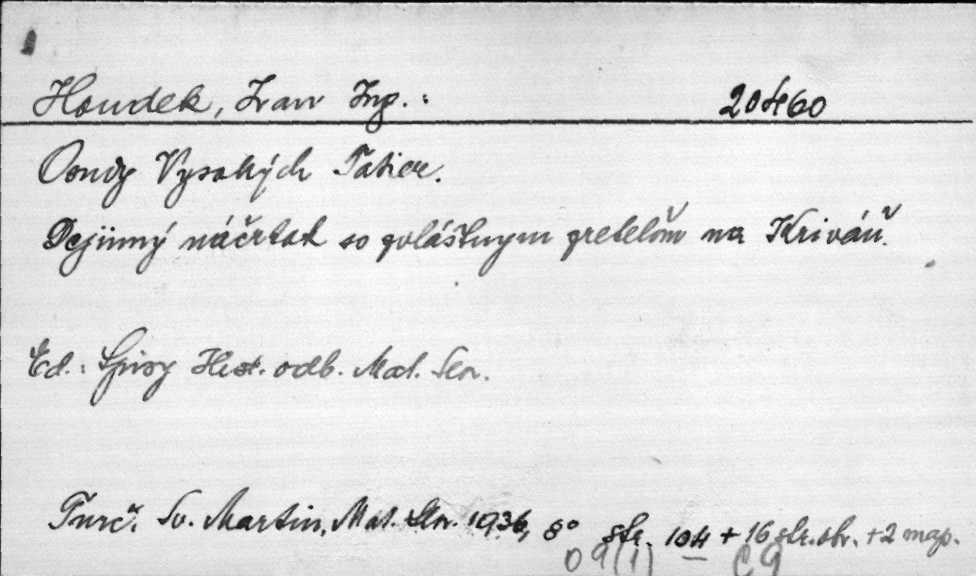 Houdek, Ivan Ing. : 20460
Osudy Vysokých Tatier.
Dejinný náčrtok so zvláštnym zreteľom na Kriváň.
Ed.: Spisy Hist. odb. Mat. Slov.
Turč. Sv. Martin, Mat. Slov. 1936, 8° str. 104 + 16 str. obr. + 2 map.
09(1) C9